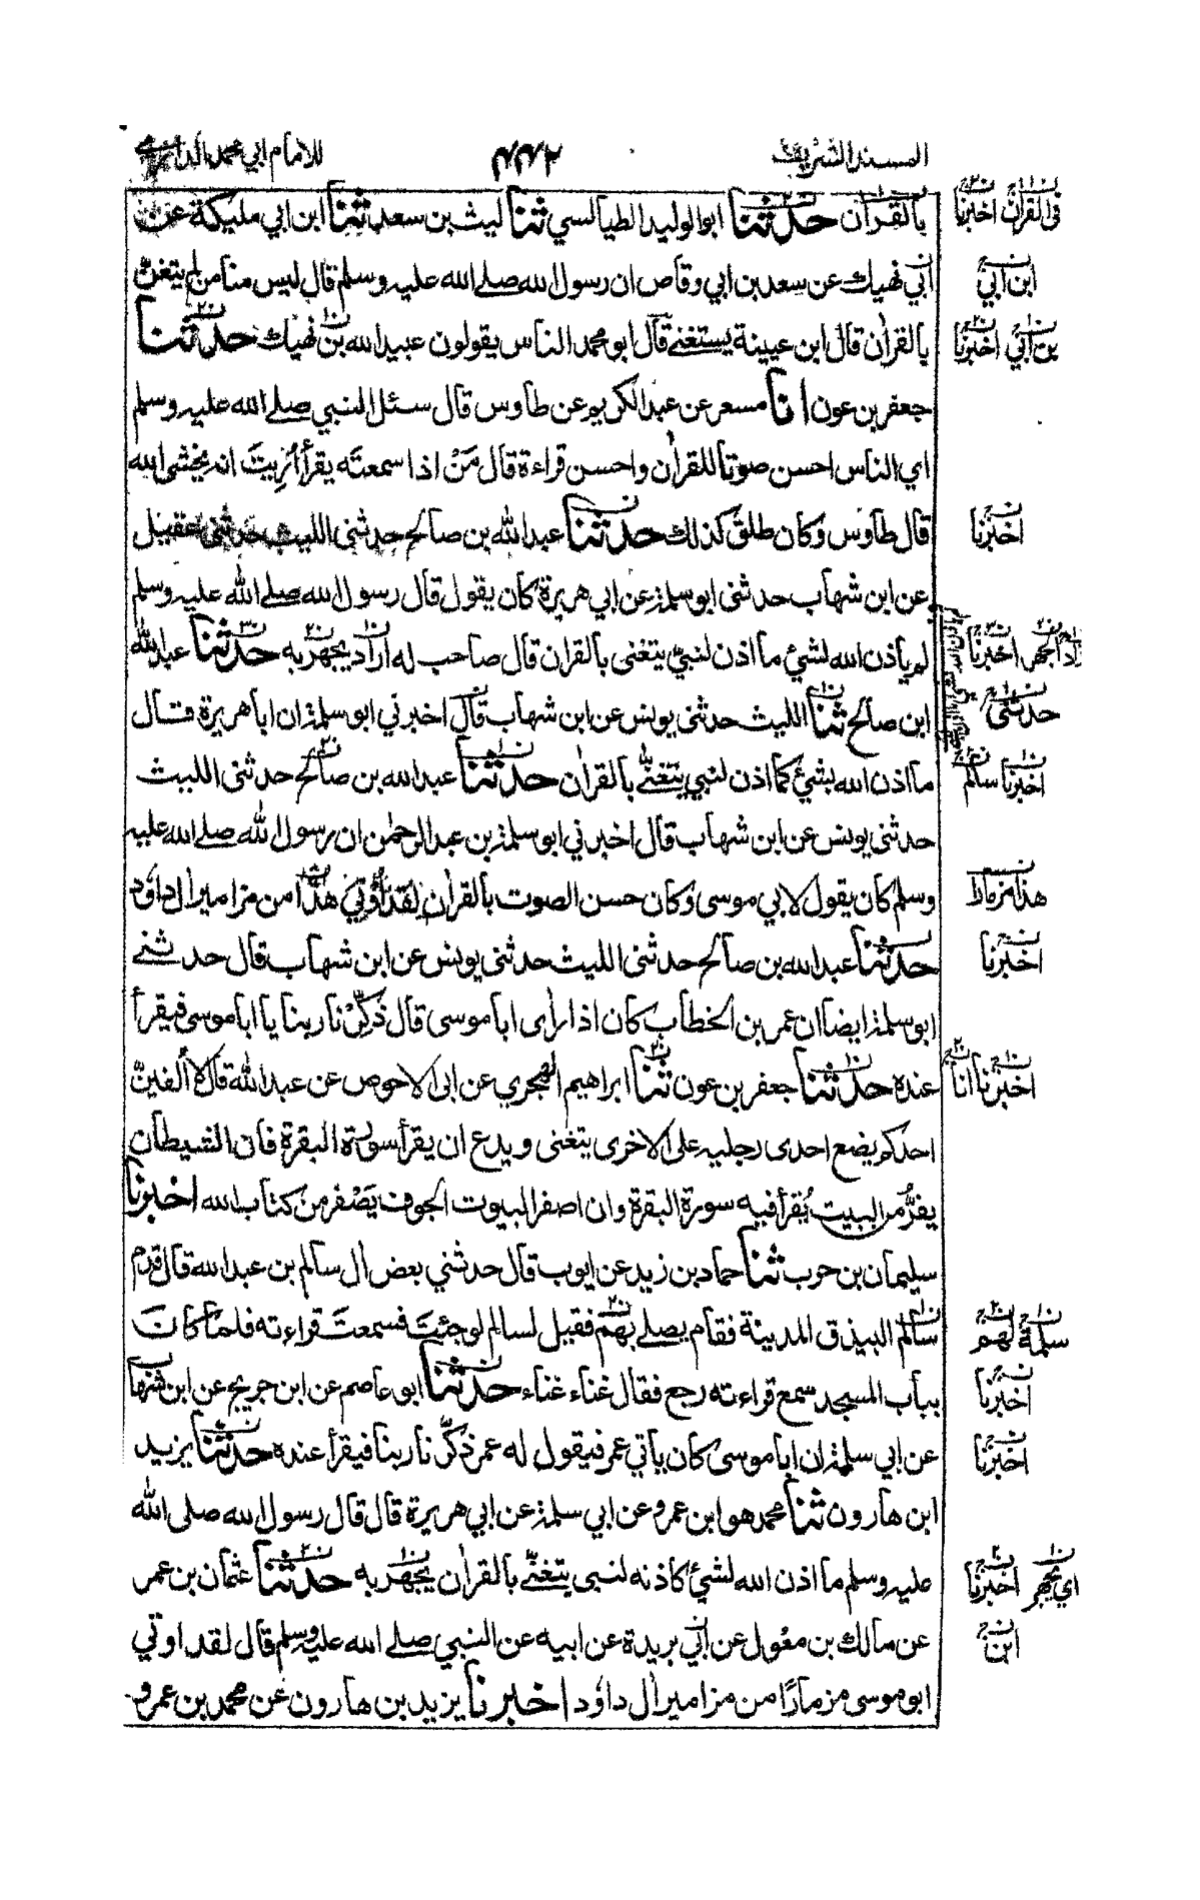 المسند الشريف ٤٤٢ للامام ابي محمد الدارمي
بالقرآن حدثنا ابو الوليد الطيالسي ثنا ليث بن سعد ثنا ابن ابي مليكة عن
ابي نهيك عن سعد بن ابي وقاص ان رسول الله صلے الله عليه وسلم قال ليس منا من لم يتغنّ
بالقرآن قال ابن عيينة يستغنے قال ابو محمد الناس يقولون عبيد الله بن نهيك حدثنا
جعفر بن عون انا مسعر عن عبد الكريم عن طاوس قال سئل النبي صلے الله عليه وسلم
اي الناس احسن صوتا للقرآن واحسن قراءة قال مَنْ اذا سمعتَه يقرأ أُرِيتَ انه يخشى الله
قال طاوس وكان طلق كذلك حدثنا عبد الله بن صالح حدثنى الليث حدثنى عقيل
عن ابن شهاب حدثنى ابو سلمة عن ابي هريرة كان يقول قال رسول الله صلے الله عليه وسلم
لم ياذن الله لشيء ما اذن لنبي يتغنى بالقران قال صاحب له اراد يجهر به حدثنا عبد الله
ابن صالح ثنا الليث حدثنى يونس عن ابن شهاب قال اخبرني ابو سلمة ان ابا هريرة قال
ما اذن الله بشيء كما اذن لنبي يتغنّے بالقرآن حدثنا عبد الله بن صالح حدثنى الليث
حدثنى يونس عن ابن شهاب قال اخبرني ابو سلمة بن عبد الرحمٰن ان رسول الله صلے الله عليه
وسلم كان يقول لابي موسى وكان حسن الصوت بالقرآن لقد أُوتي هذا من مزامير ال داود
حدثنا عبد الله بن صالح حدثنى الليث حدثنى يونس عن ابن شهاب قال حدثنے
ابو سلمة ايضا ان عمر بن الخطاب كان اذا رأى ابا موسى قال ذكِّرْنا ربنا يا ابا موسى فيقرأ
عنده حدثنا جعفر بن عون ثنا ابراهيم الهجري عن ابى الاحوص عن عبد الله قال لا ألفينّ
احدكم يضع احدى رجليه على الاخرى يتغنى ويدع ان يقرأ سورة البقرة فان الشيطان
يفرُّ من البيت يُقرأ فيه سورة البقرة وان اصفر البيوت الجوف يَصْفَر من كتاب الله اخبرنا
سليمان بن حرب ثنا حماد بن زيد عن ايوب قال حدثني بعض ال سالم بن عبد الله قال قدم
سالم البيذق المدينة فقام يصلے بهم فقيل لسالم لو جئتَ فسمعتَ قراءته فلما كان
بباب المسجد سمع قراءته رجع فقال غناء غناء حدثنا ابو عاصم عن ابن جريج عن ابن شهاب
عن ابي سلمة ان ابا موسى كان ياتي عمر فيقول له عمر ذكِّرنا ربنا فيقرأ عنده حدثنا يزيد
ابن هارون ثنا محمد هو ابن عمرو عن ابي سلمة عن ابي هريرة قال قال رسول الله صلى الله
عليه وسلم ما اذن الله لشيء كاذنه لنبى يتغنّے بالقرآن يجهر به حدثنا عثمان بن عمر
عن مالك بن مغول عن ابي بريدة عن ابيه عن النبي صلے الله عليه وسلم قال لقد اوتي
ابو موسى مزمارًا من مزامير ال داود اخبرنا يزيد بن هارون عن محمد بن عمرو
فى القرآن اخبرنا
ابن ابي
بن ابي اخبرنا
اخبرنا
الجهر اخبرنا
حدثنى
اخبرنا سالم
هذا مزمارا
اخبرنا
اخبرنا انا
سلمة لهم
اخبرنا
اخبرنا
اي يجهر اخبرنا
ابن